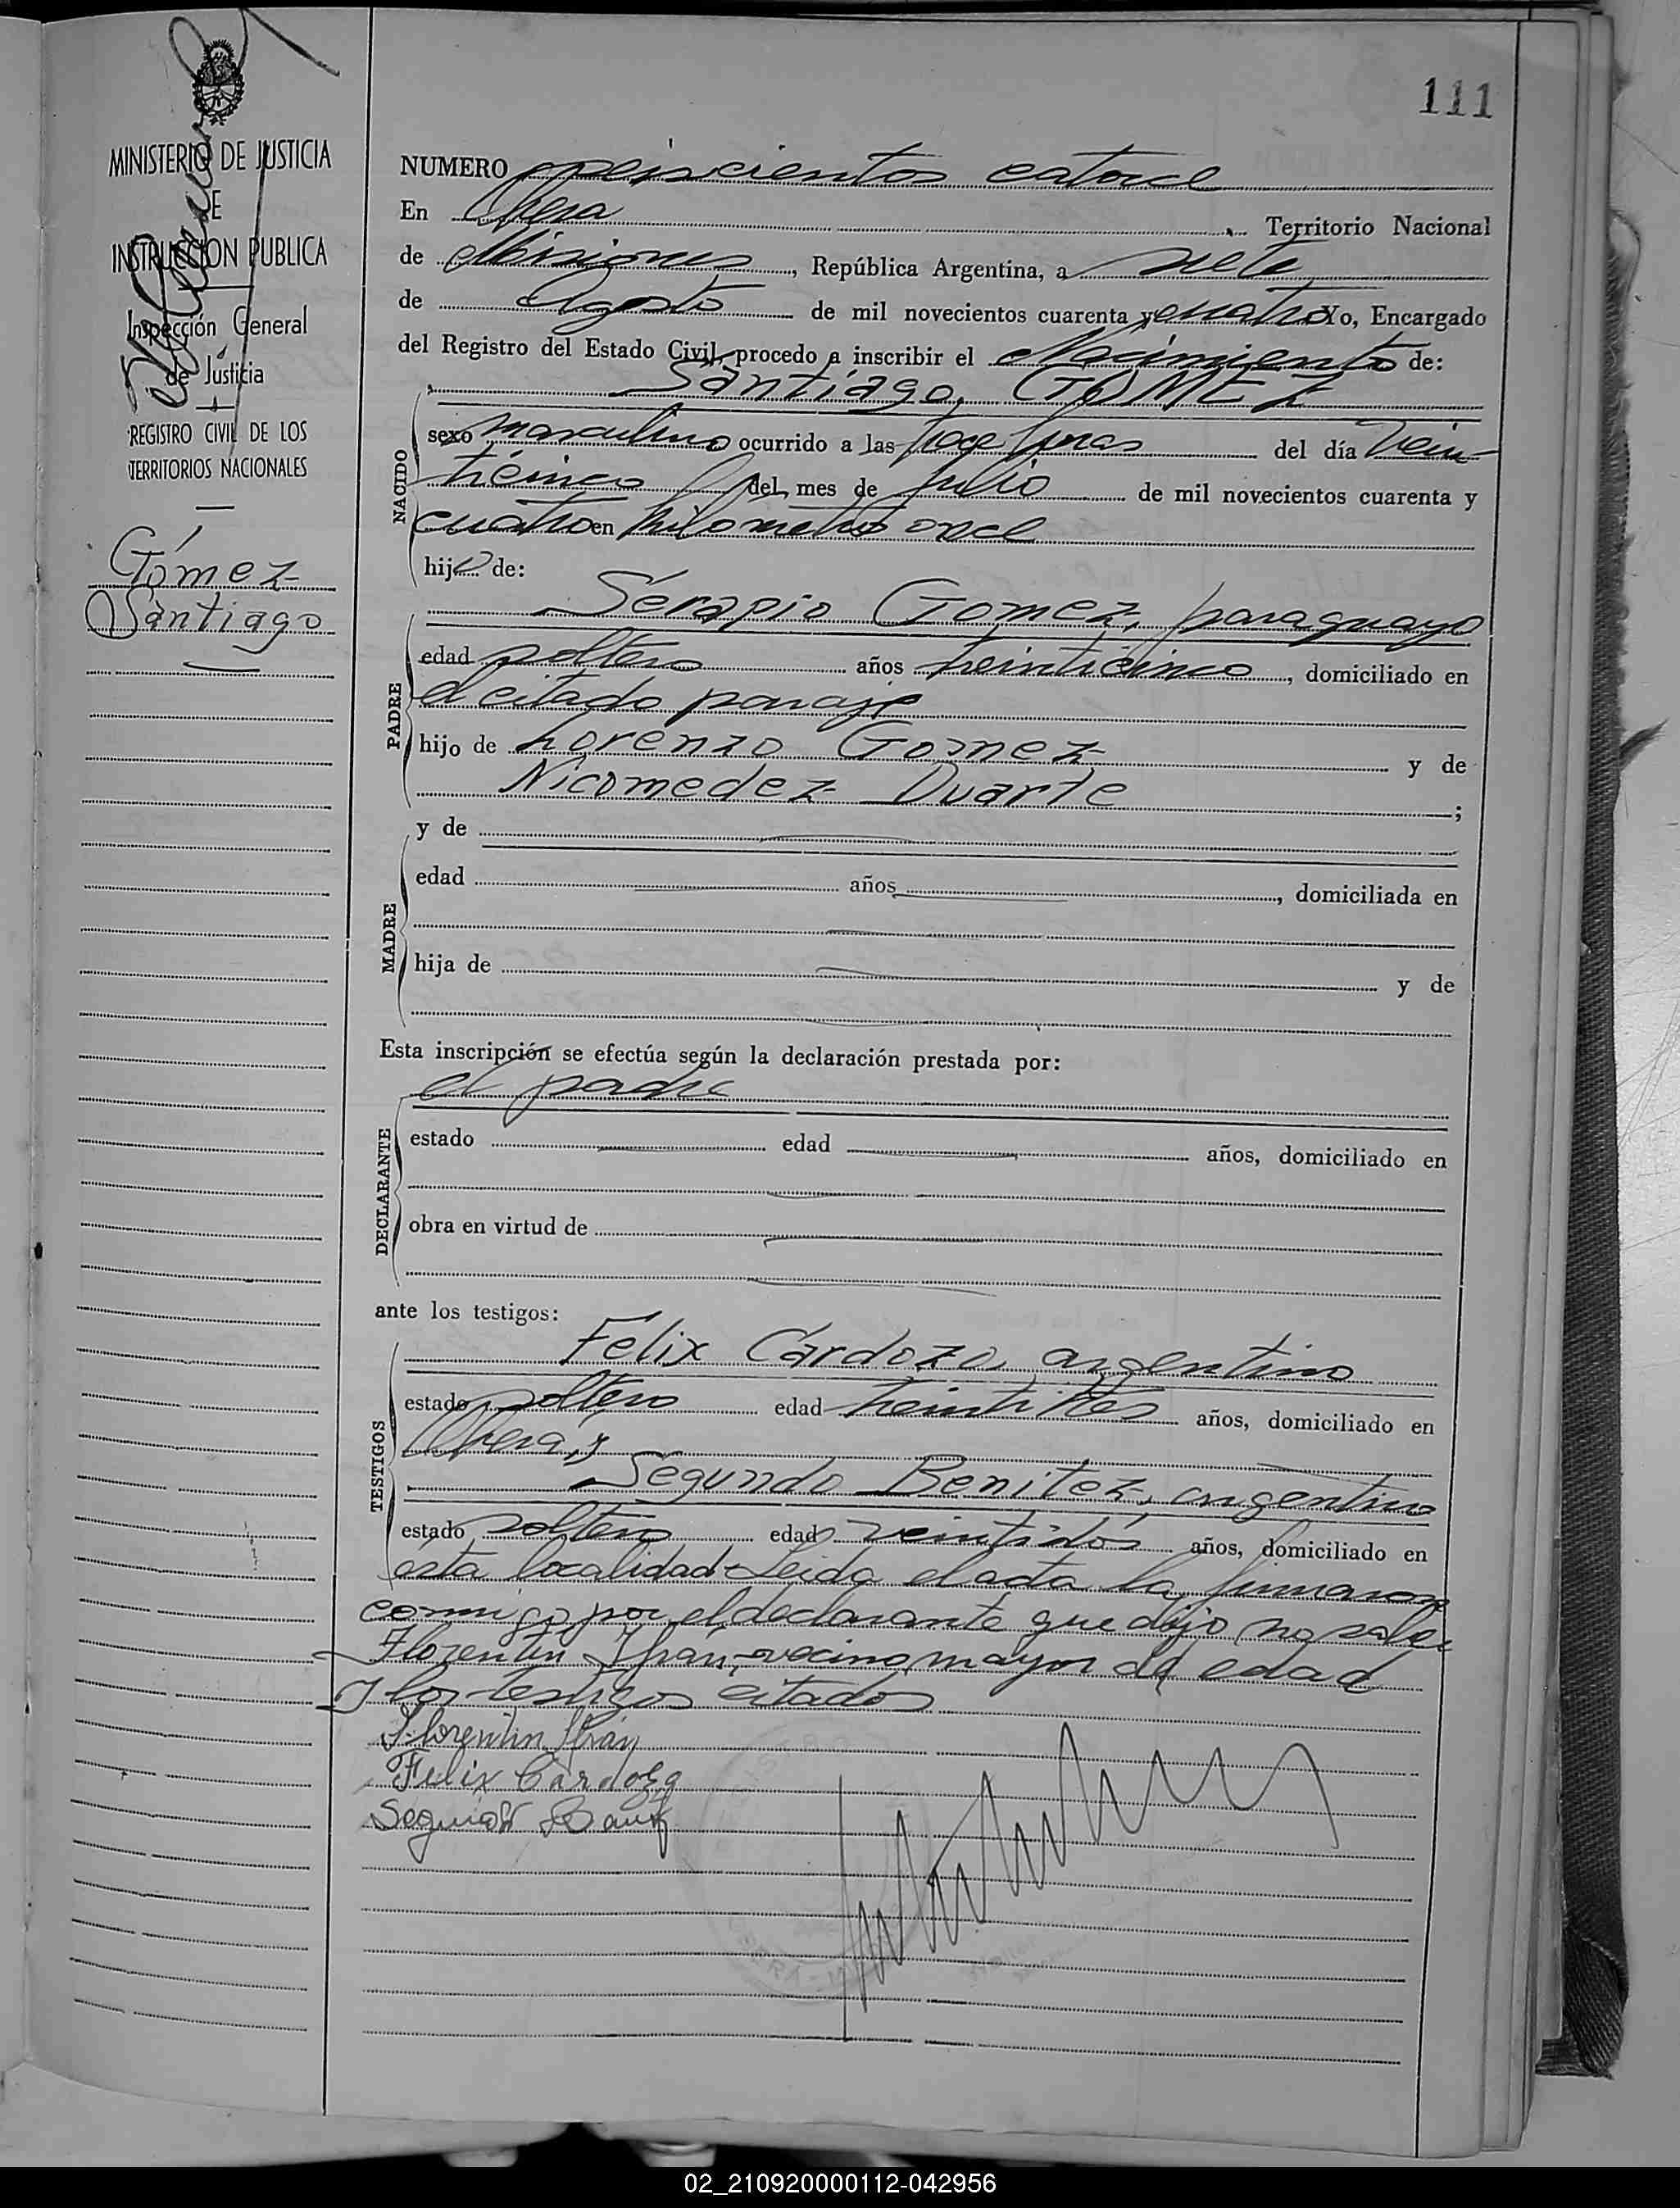 111
MINISTERIO DE JUSTICIA
E
INSTRUCCION PUBLICA
Inspección General
de Justicia
REGISTRO CIVIL DE LOS
TERRITORIOS NACIONALES
Gómez
Santiago
NUMERO seiscientos catorce
En Obera, Territorio Nacional
de Misiones, República Argentina, a siete
de Agosto de mil novecientos cuarenta y cuatro Yo, Encargado
del Registro del Estado Civil, procedo a inscribir el Nacimiento de:
Santiago, GOMEZ
NACIDO
sexo masculino ocurrido a las doce horas del día vein-
ticinco del mes de julio de mil novecientos cuarenta y
cuatro en kilometro once
hijo de:
PADRE
Serapio Gomez, paraguayo
edad soltero años veinticinco, domiciliado en
el citado paraje
hijo de Lorenzo Gomez y de
Nicomedez Duarte ;
MADRE
y de
edad años, domiciliada en
hija de y de
Esta inscripción se efectúa según la declaración prestada por:
DECLARANTE
el padre
estado edad años, domiciliado en
obra en virtud de
ante los testigos:
TESTIGOS
Félix Cardozo, argentino
estado soltero edad veintitres años, domiciliado en
Obera, y
Segundo Benitez, argentino
estado soltero edad veintidós años, domiciliado en
esta localidad Leida el acta la firmaron
conmigo por el declarante que dijo no saber
Florentin Ifran, vecino mayor de edad
y los testigos citados
Florentin Ifrán
Felix Cardozo
02_210920000112-042956